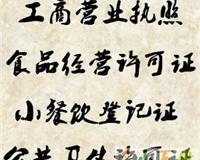 工商营业执照
食品经营许可证
小餐饮登记证
公共卫生许可证